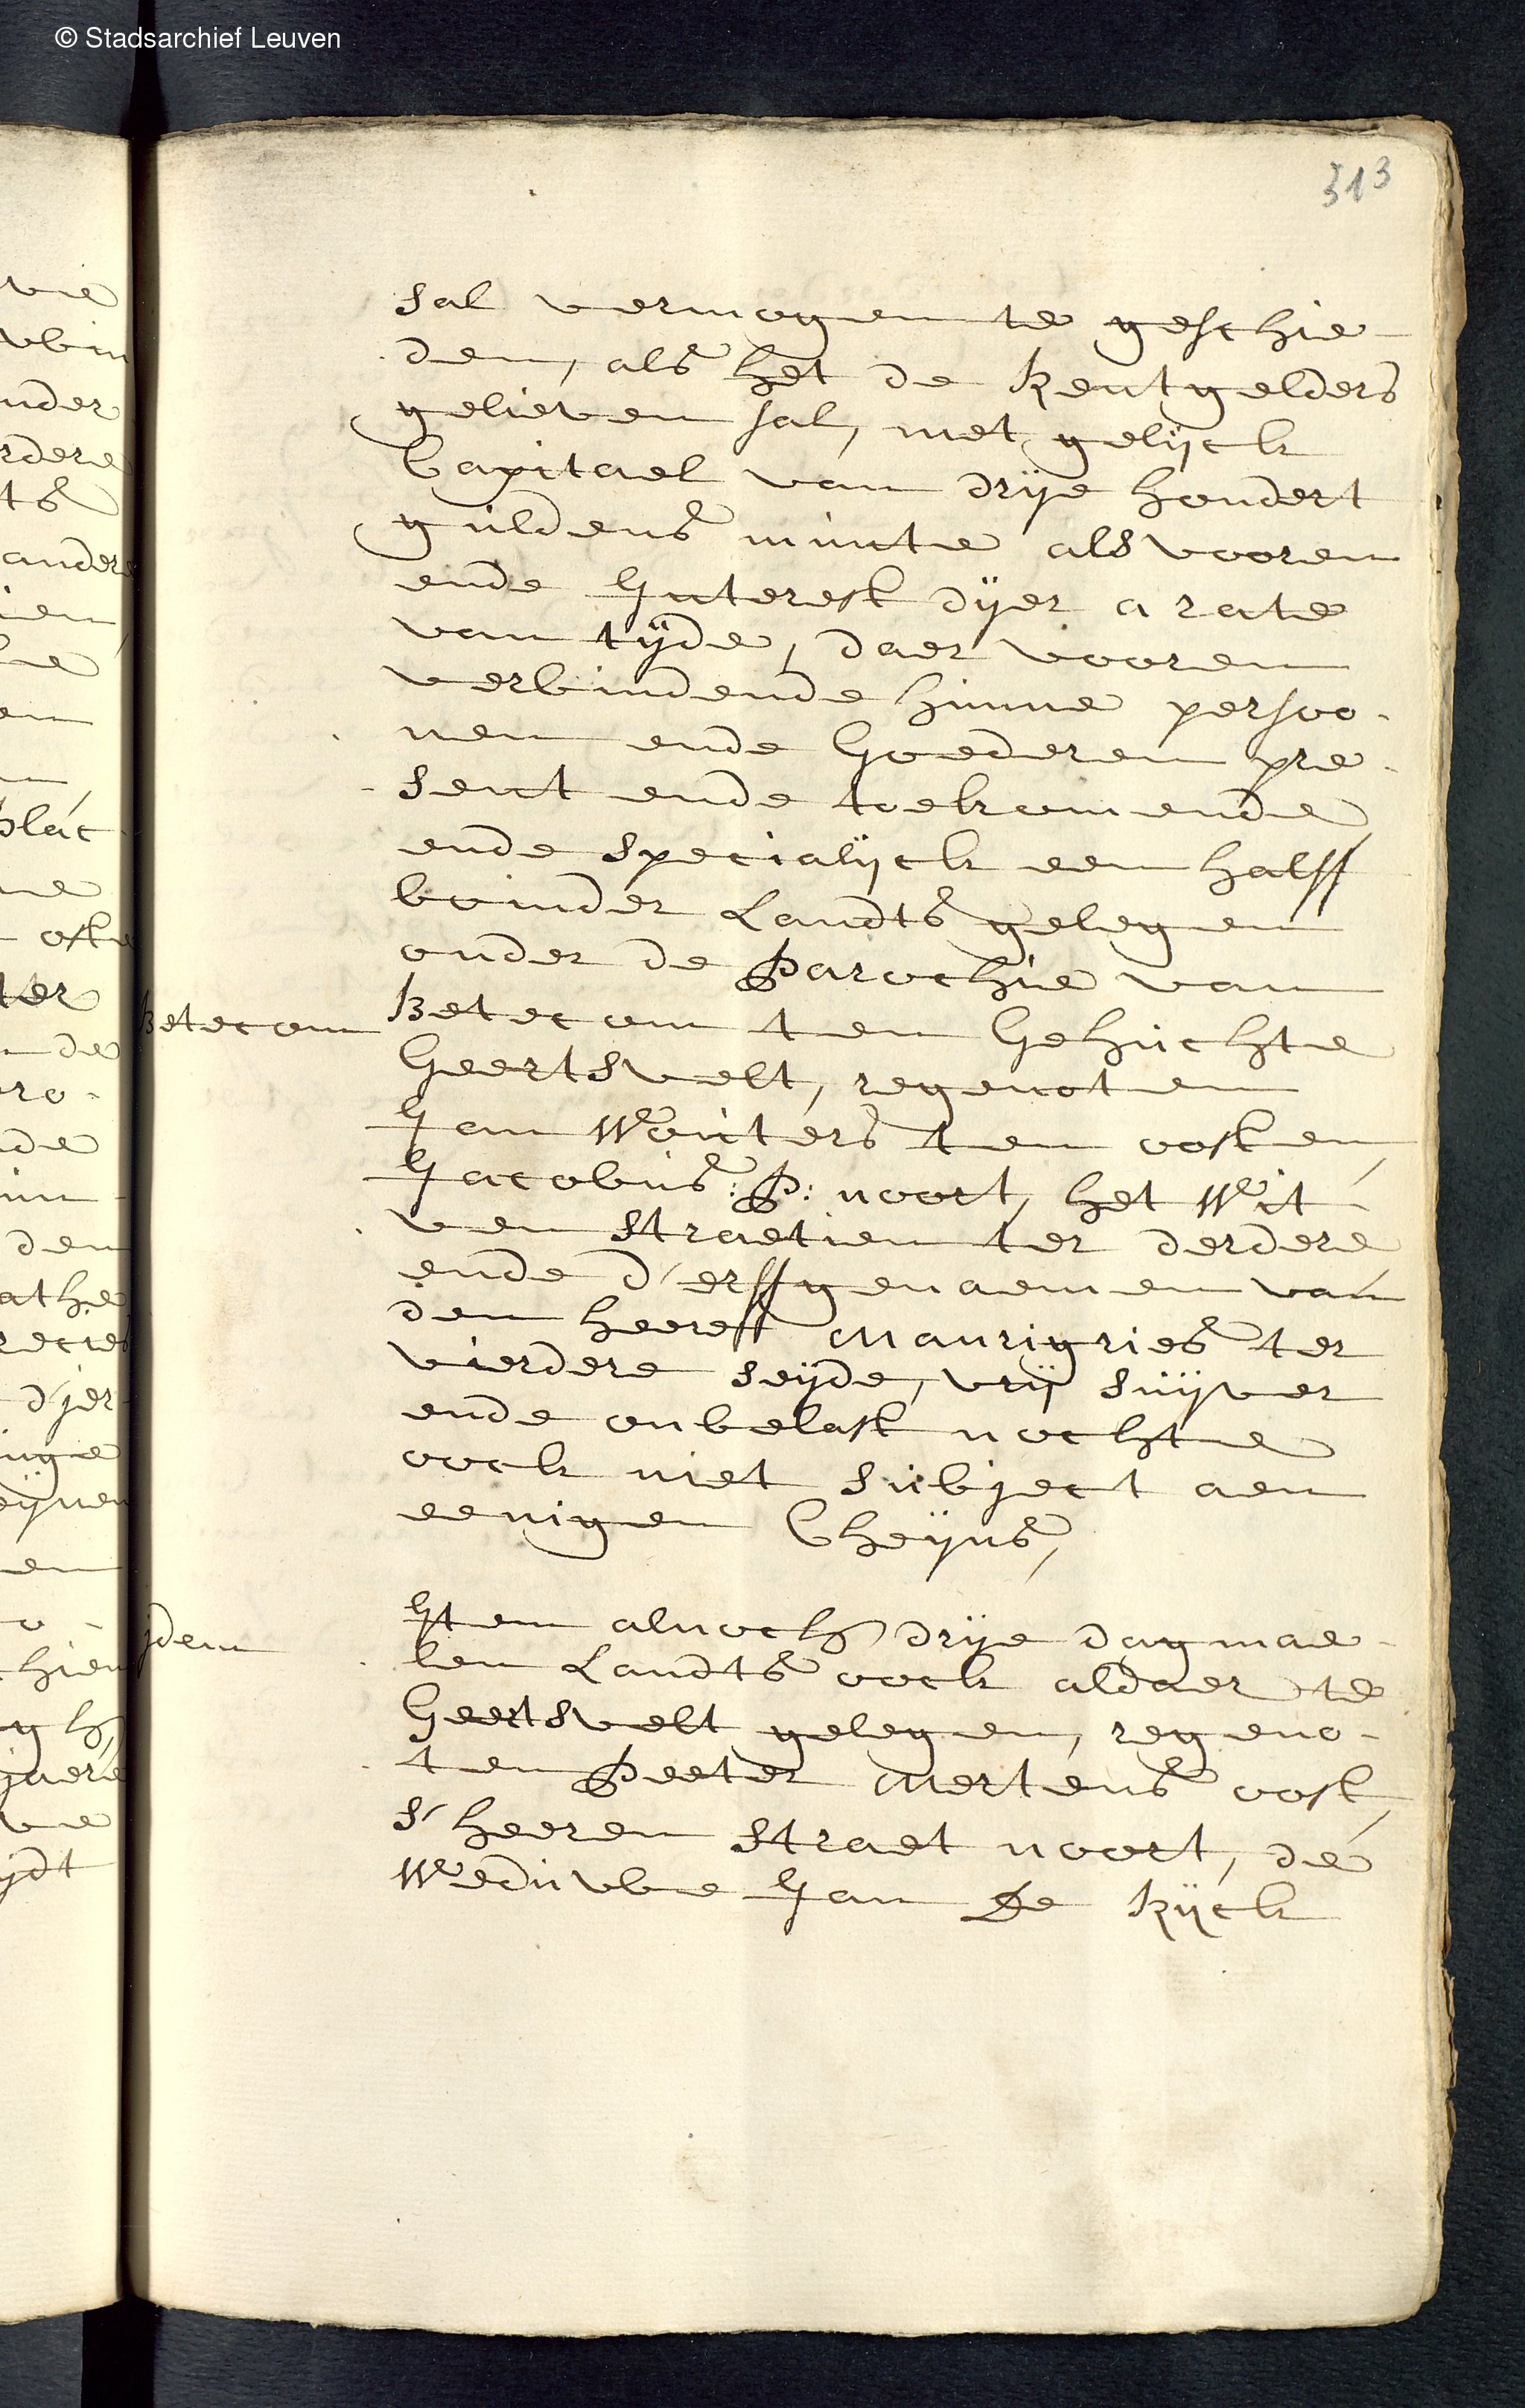 © Stadsarchief Leuven
313
sal vermogen te geschie
den, als het de Rentgelders
gelieven sal, met gelijck
Capitael van drije hondert
guldens munte als vooren
ende Interest dijer a rate
van tijde, daer vooren
verbindende hunne persoo-
nen ende Goederen pre-
sent ende toekomende
ende specialijck een halff
boinder Landts gelegen
onder de Parochie van
Betecom
Betecom ten Gehuchte
Geertsvelt, regenoten
Jan Wouters ten oosten,
Jacobus: P: noort, het Wit
ven straetien ter derdere
ende d'erffgenaemen van
den heere Maurigries ter
vierdere seijde, vrij suijver
ende onbelast nochte
oock niet subject aen
eenigen Cheijns,
jdem
Item alnoch drije dagmae-
len Landts oock aldaer te
Geertsvelt gelegen, regeno-
ten Peeter Mertens oost,
s'heeren straet noort, de
Weduwe Jan De Rijck